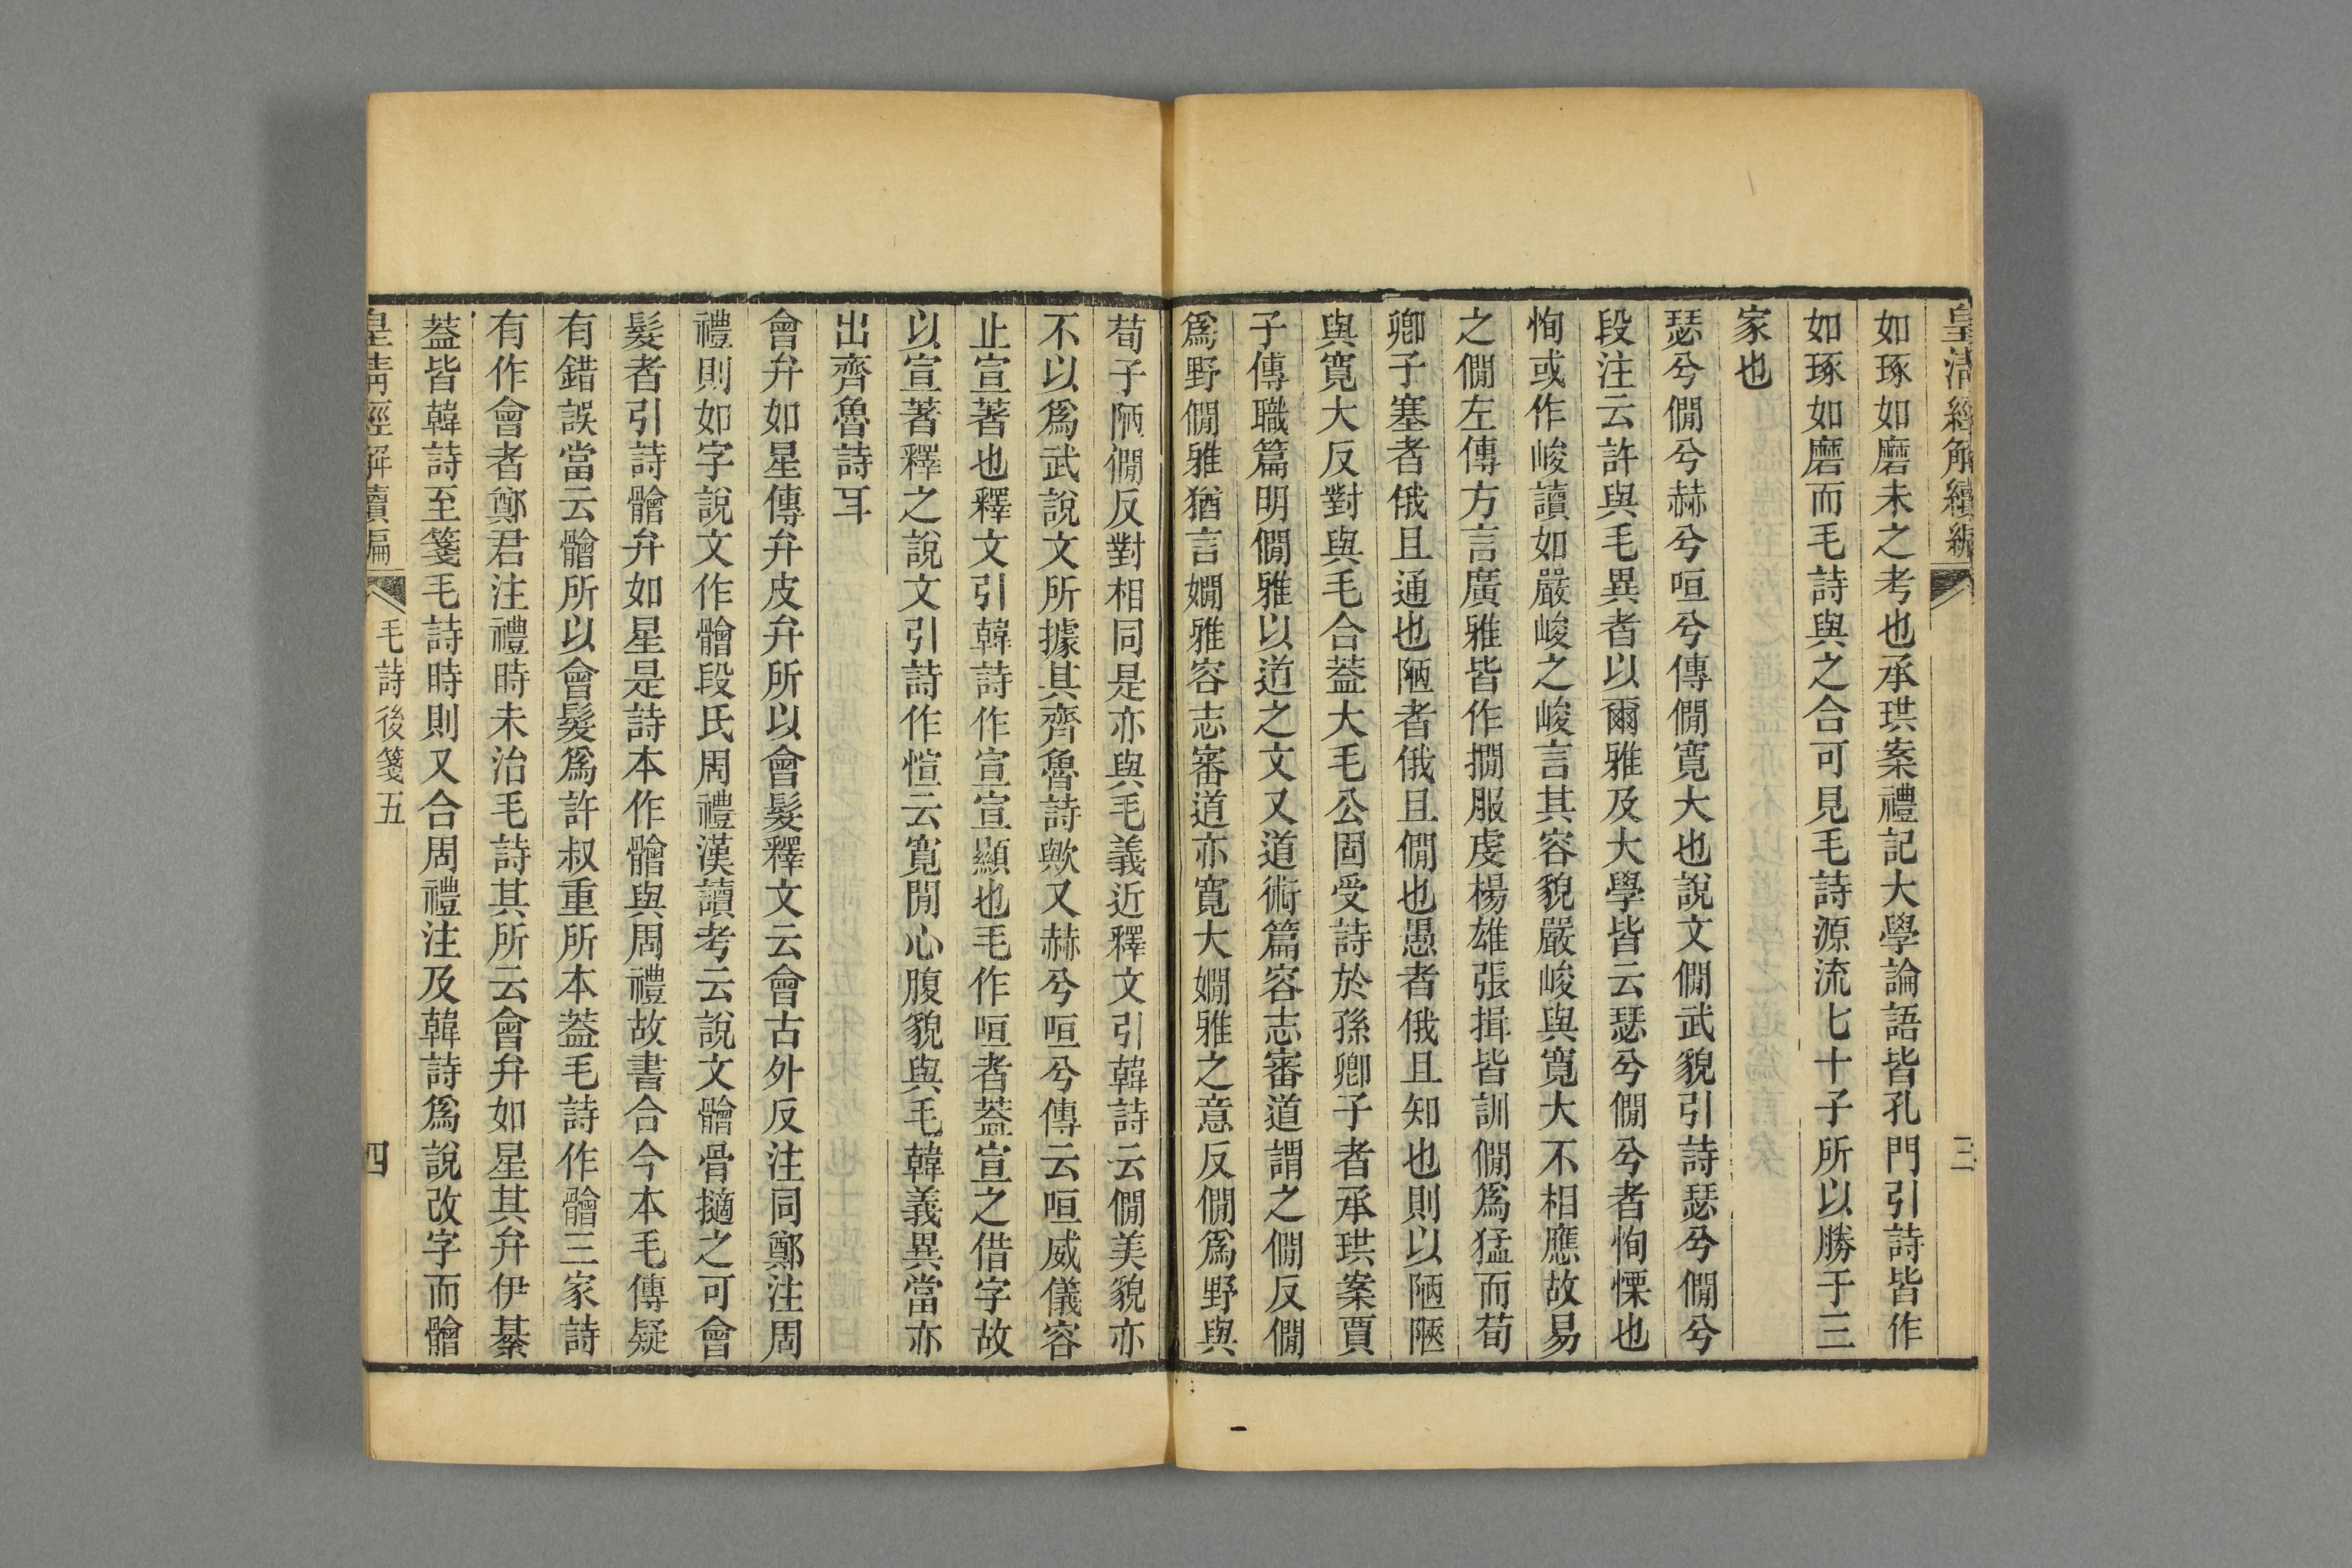 皇清經解續編
三
如琢如磨未之考也承珙案禮記大學論語皆孔門引詩皆作
如琢如磨而毛詩與之合可見毛詩源流七十子所以勝于三
家也
瑟兮僩兮赫兮咺兮傳僩寬大也說文僩武貌引詩瑟兮僩兮
段注云許與毛異者以爾雅及大學皆云瑟兮僩兮者恂慄也
恂或作峻讀如嚴峻之峻言其容貌嚴峻與寬大不相應故易
之僩左傳方言廣雅皆作撊服虔楊雄張揖皆訓僩爲猛而荀
卿子塞者俄且通也陋者俄且僩也愚者俄且知也則以陋陿
與寬大反對與毛合葢大毛公固受詩於孫卿子者承珙案賈
子傳職篇明僩雅以道之文又道術篇容志審道謂之僩反僩
爲野僩雅猶言嫺雅容志審道亦寬大嫺雅之意反僩爲野與
荀子陋僩反對相同是亦與毛義近釋文引韓詩云僩美貌亦
不以爲武說文所據其齊魯詩歟又赫兮咺兮傳云咺威儀容
止宣著也釋文引韓詩作宣宣顯也毛作咺者葢宣之借字故
以宣著釋之說文引詩作愃云寬閒心腹貌與毛韓義異當亦
出齊魯詩耳
會弁如星傳弁皮弁所以會髮釋文云會古外反注同鄭注周
禮則如字說文作䯤段氏周禮漢讀考云說文䯤骨擿之可會
髮者引詩䯤弁如星是詩本作䯤與周禮故書合今本毛傳疑
有錯誤當云䯤所以會髮爲許叔重所本葢毛詩作䯤三家詩
有作會者鄭君注禮時未治毛詩其所云會弁如星其弁伊綦
葢皆韓詩至箋毛詩時則又合周禮注及韓詩爲說改字而䯤
皇清經解續編
毛詩後箋五
四